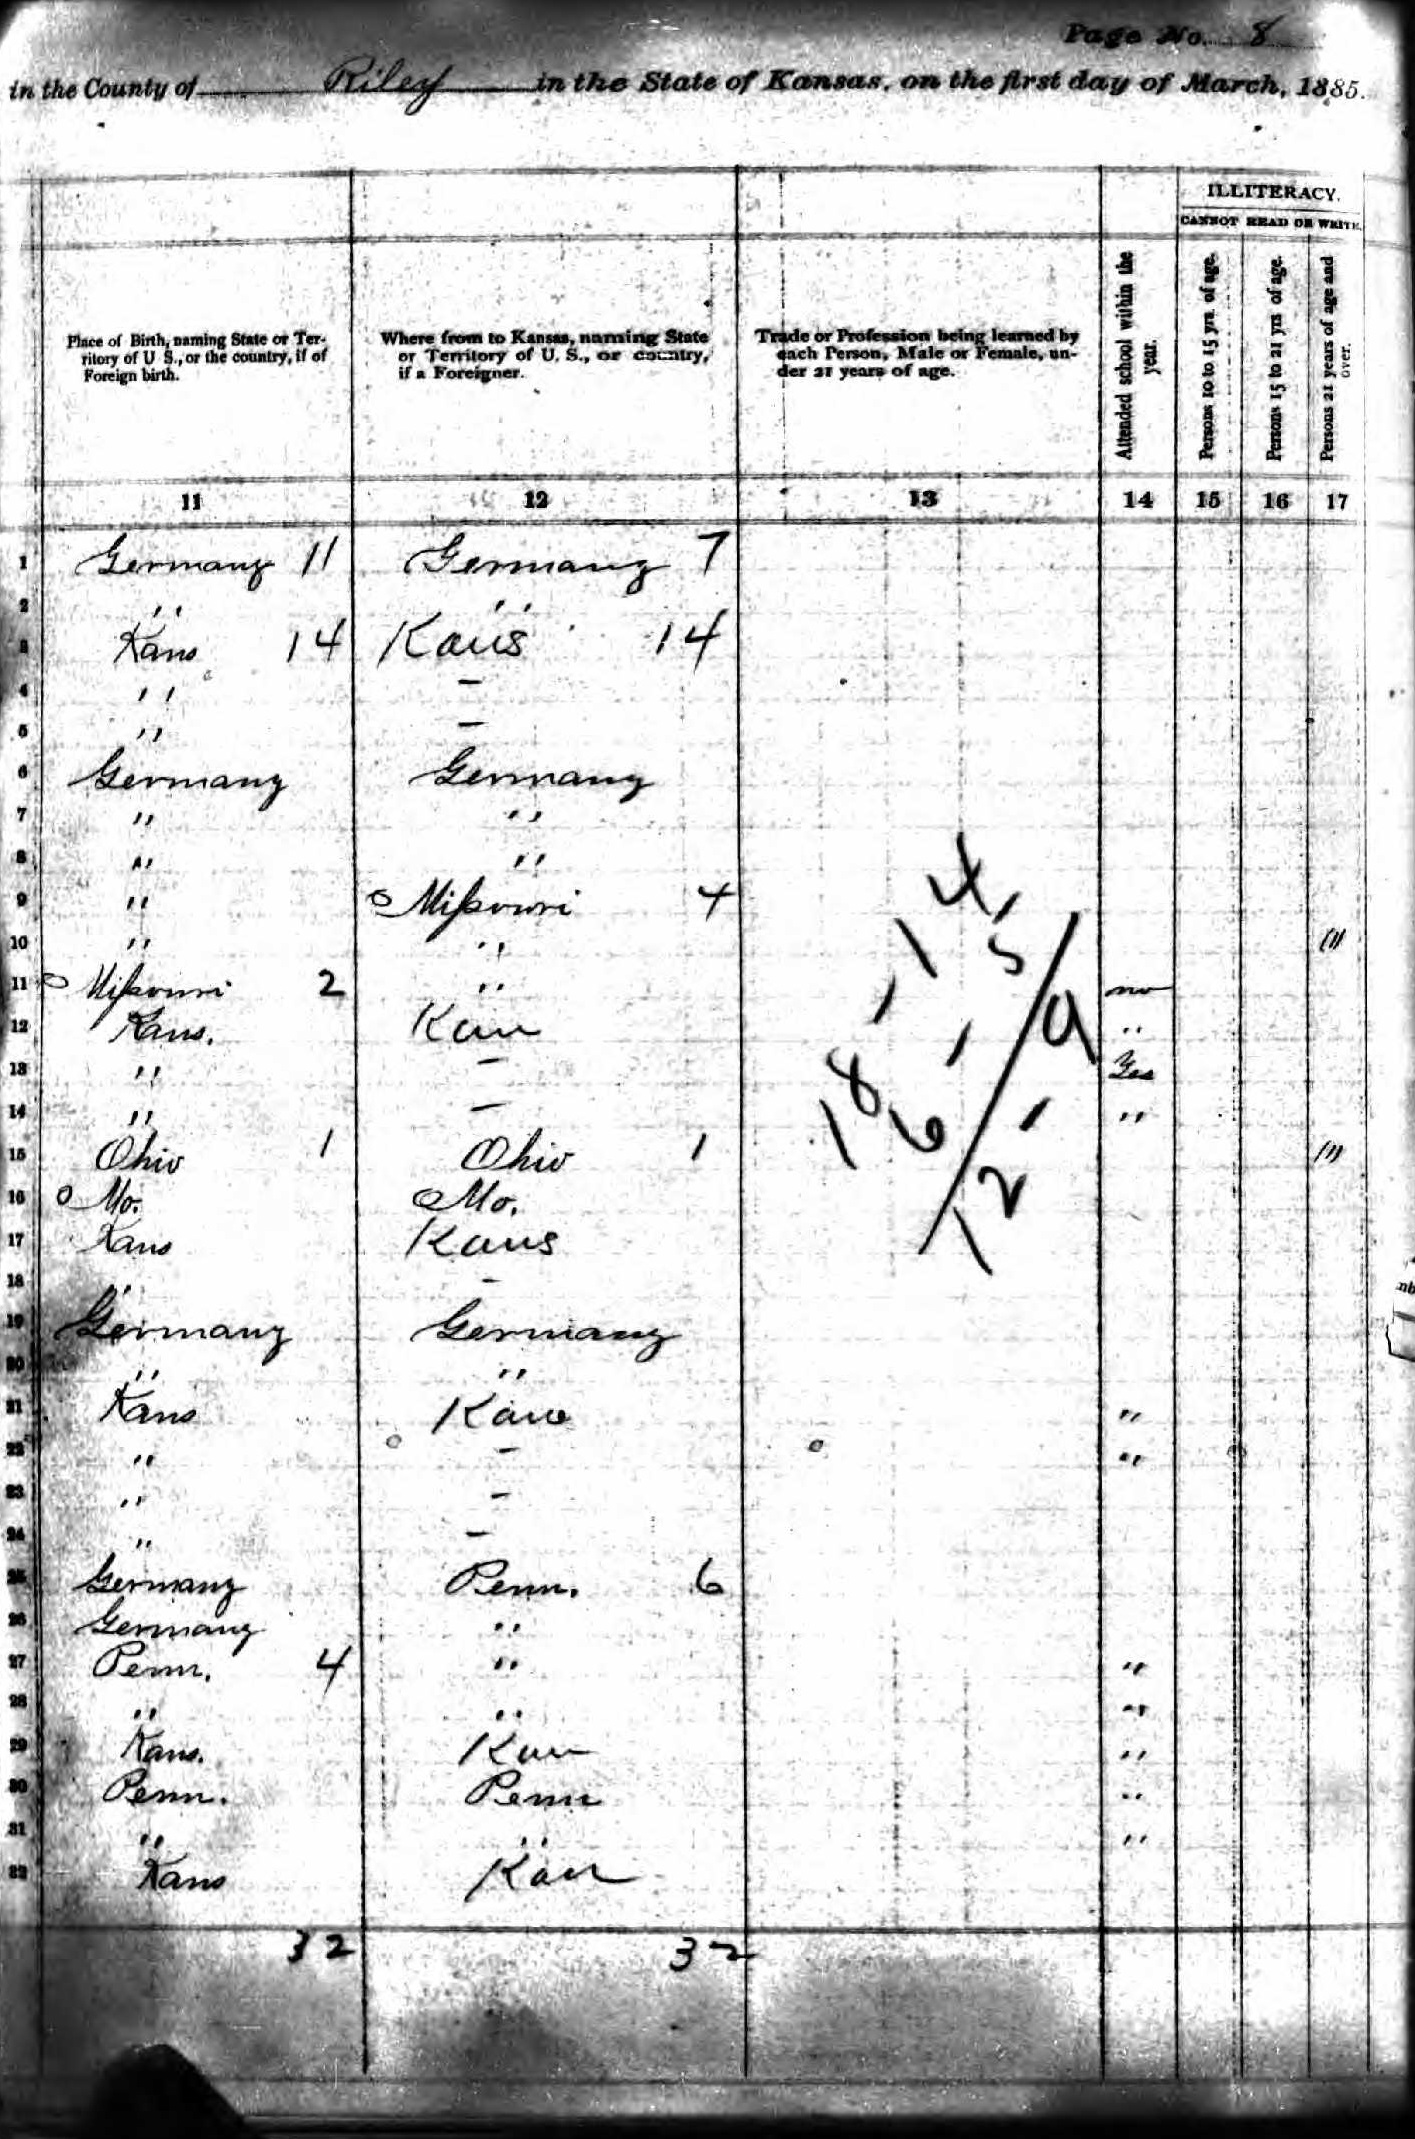 Page No. 8
in the County of Riley in the State of Kansas, on the first day of March, 1885.
ILLITERACY.
CANNOT READ OR WRITE.
Place of Birth, naming State or Territory of U S., or the country, if of Foreign birth.
Where from to Kansas, naming State or Territory of U. S., or country, if a Foreigner.
Trade or Profession being learned by each Person, Male or Female, under 21 years of age.
Attended school within the year.
Persons 10 to 15 yrs. of age.
Persons 15 to 21 yrs of age.
Persons 21 years of age and over.
11 12 13 14 15 16 17
1 Germany 11 Germany 7
2 " "
3 Kans 14 Kans 14
4 " –
5 " –
6 Germany Germany
7 " "
8 " "
9 " Missouri 4
10 " " (1)
11 Missouri 2 " no
12 Kans. Kan "
13 " – Yes
14 " – "
15 Ohio 1 Ohio 1 (1)
16 Mo. Mo.
17 Kans Kans
18 " –
19 Germany Germany
20 " "
21 Kans Kans "
22 " – "
23 " –
24 " –
25 Germany Penn. 6
26 Germany "
27 Penn. 4 " "
28 " " "
29 Kans. Kan "
30 Penn. Penn "
31 " " "
32 Kans Kan
18 - 14,
6 - 5
12 - 9
32 32